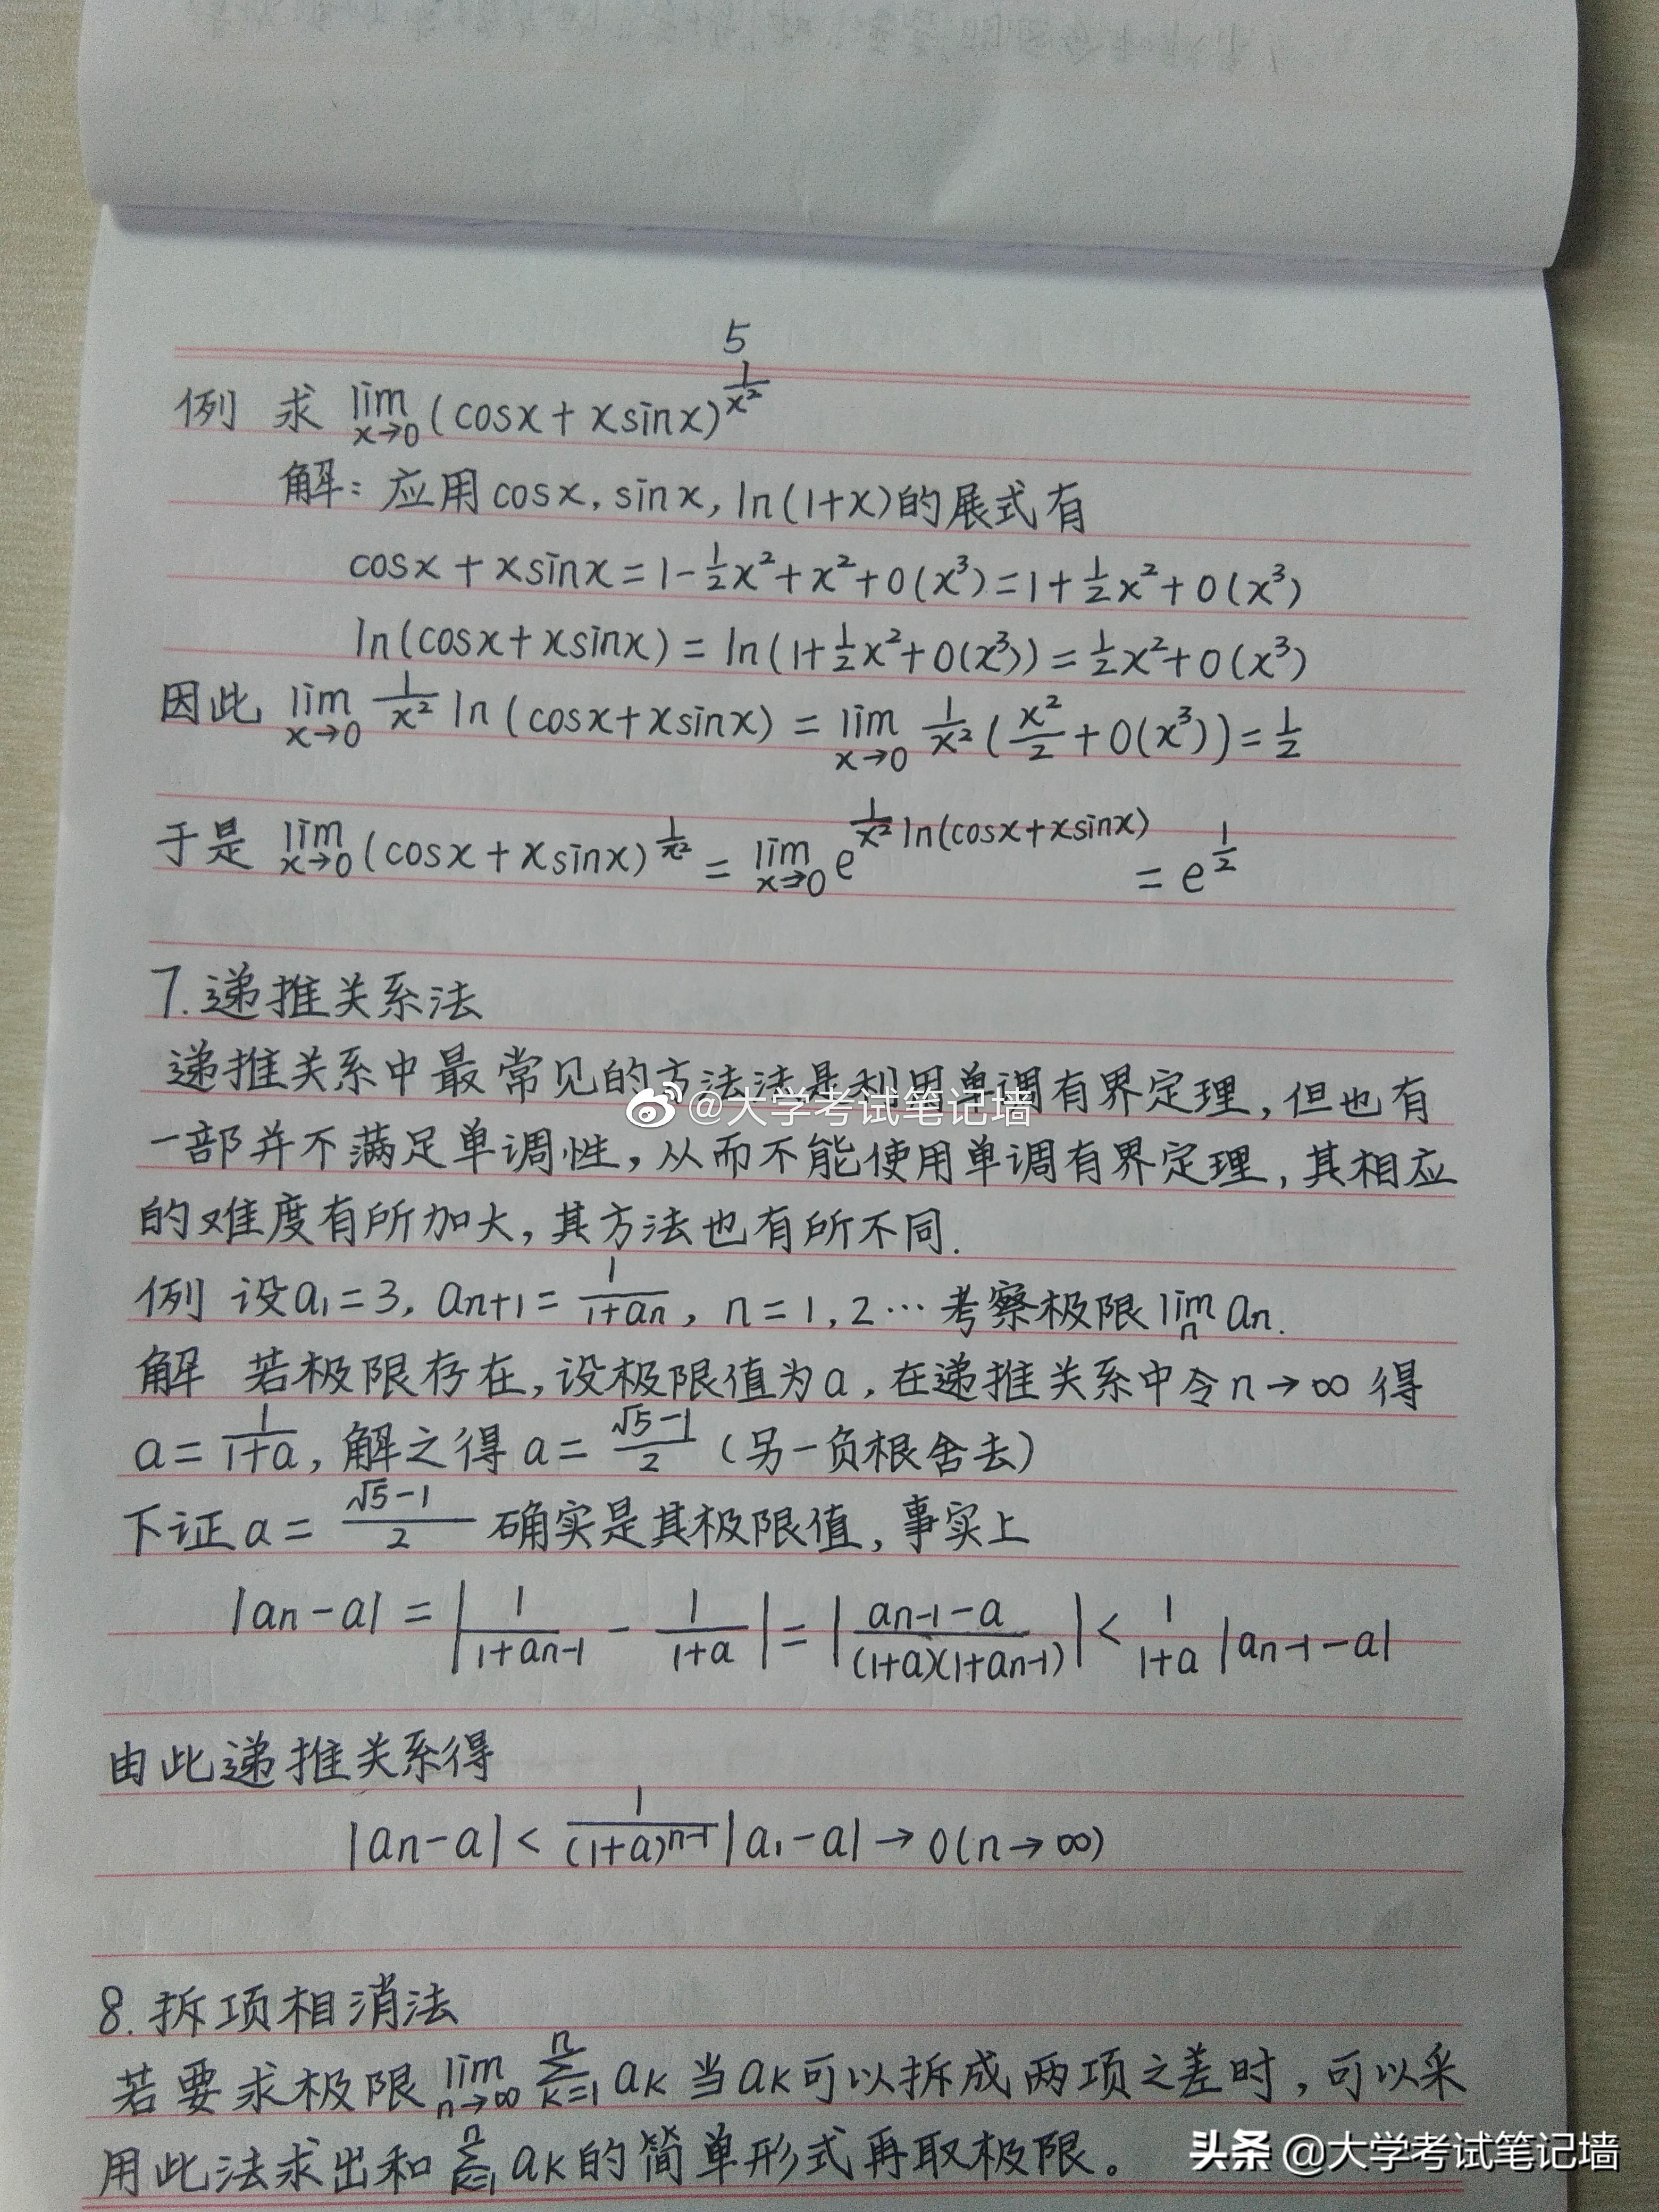 5
例 求 lim x→0 (cosx + xsinx)^(1/x²)
解: 应用cosx, sinx, ln(1+x)的展式有
cosx + xsinx = 1 - 1/2 x² + x² + 0(x³) = 1 + 1/2 x² + 0(x³)
ln(cosx + xsinx) = ln(1 + 1/2 x² + 0(x³)) = 1/2 x² + 0(x³)
因此 lim x→0 1/x² ln(cosx + xsinx) = lim x→0 1/x² (x²/2 + 0(x³)) = 1/2
于是 lim x→0 (cosx + xsinx)^(1/x²) = lim x→0 e^(1/x² ln(cosx + xsinx)) = e^(1/2)
7.递推关系法
递推关系中最常见的方法法是利用单调有界定理,但也有
@大学考试笔记墙
一部并不满足单调性,从而不能使用单调有界定理,其相应
的难度有所加大,其方法也有所不同.
例 设a₁=3, an+1 = 1/(1+an), n=1,2… 考察极限 lim n an.
解 若极限存在,设极限值为a,在递推关系中令n→∞得
a = 1/(1+a), 解之得 a = (√5-1)/2 (另一负根舍去)
下证a = (√5-1)/2 确实是其极限值,事实上
|an-a| = |1/(1+an-1) - 1/(1+a)| = |(an-1-a)/((1+a)(1+an-1))| < 1/(1+a) |an-1-a|
由此递推关系得
|an-a| < 1/(1+a)^(n-1) |a₁-a| → 0(n→∞)
8.拆项相消法
若要求极限 lim n→∞ Σ k=1 n ak 当ak可以拆成两项之差时,可以采
用此法求出和 Σ k=1 n ak的简单形式再取极限。
头条 @大学考试笔记墙